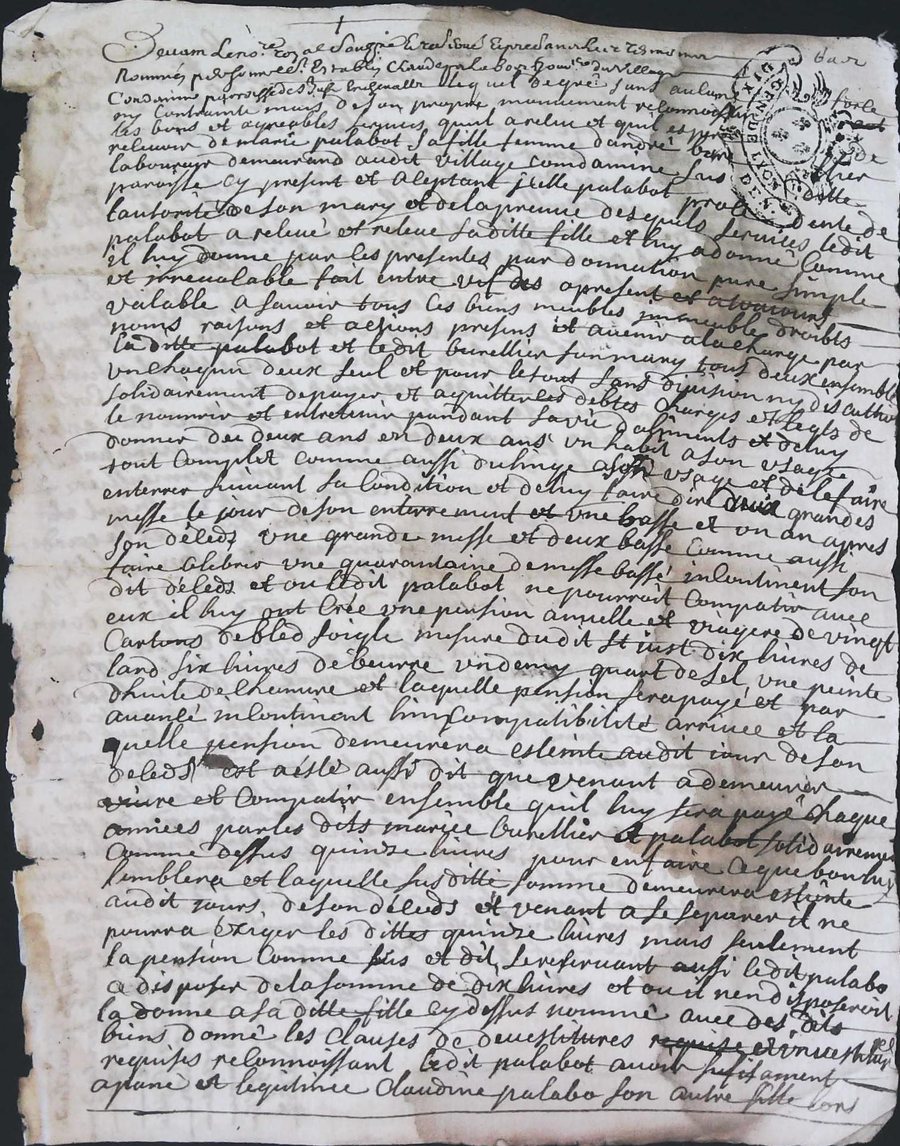 Devant le no.re royal soussigné et presants les tesmoins
Nommés personnel. Establis Claude palabot du village
Condamine parroisse de lequel de gré sans aulcune force
ny Contrainte mais de son propre mouuement reconnoissant
les bons et agreables seruices quil a receu et quil espere
receuoir de marie palabot sa fille femme dandré burellier
laboureur demeurand audit village condamine susditte
paroisse cy present et aceptant jcelle palabot procedente de
lautorité de son mary et de la preuue desquels seruices ledit
palabot a releué et releue saditte fille et luy a donné comme
il luy donne par les presentes par donnation pure simple
et irreuocable fait entre vifs a present et a toujours
valable a sauoir tous ces biens meubles immeuble droibts
noms raisons et actions presens et auenir a la charge par
la ditte palabot et ledit burellier son mary tous deux ensemble
vn chaqun deux seul et pour le tout sans diuision ny discution
solidairement de payer et aquitter les debtes charges et legts de
le nourrir et entretenir pandant sa vie dalimants et de luy
donner de deux ans en deux ans vn habit a son vsage
tout complet comme aussi du linge a son vsage et de le faire
enterrer suiuant sa Condition et de luy faire dire deux grandes
messe le jour de son enterrement et vne basse et vn an apres
son déleds vne grande messe et deux basse Comme aussi
faire celebrer vne quarantaine de messe basse incontinent son
dit déleds et ou ledit palabot ne pourroit Compatir auec
eux il luy ont Crée vne pension annuelle et viagere de vingt
Cartons de bled soigle mesure dudit St just dix liures de
lard six liures de beurre vn demy quart de sel vne peinte
dhuile de Chenure et laquelle pension sera payé et par
auance incontinant linCompatibilité arriuee et la
quelle pension demeurera esteinte audit iour de son
deleds est a esté aussi dit que venant a demeurer
viure et Compatir ensemble quil luy sera payé chaque
annees par les dits mariée burellier et palabot solidairement
Comme dessus quinze liures pour en faire ce que bon luy
semblera et laquelle susditte somme demeurera esteinte
audit jours de son déleds et venant a se separer il ne
pourra exiger les dittes quinze liures mais seulement
la pension Comme sus et dit se reseruant aussi ledit palabo
a disposer de la somme de dix liures et ou il nen disposeroit
la donne a sa ditte fille cy dessus nommé auec des dits
biens donné les clauses de deuestitures
requises reconnoissant ledit palabot auoir sufisament
apané et legitimée Claudine palabo son autre fille lors
DIX
GEN. DE LYON